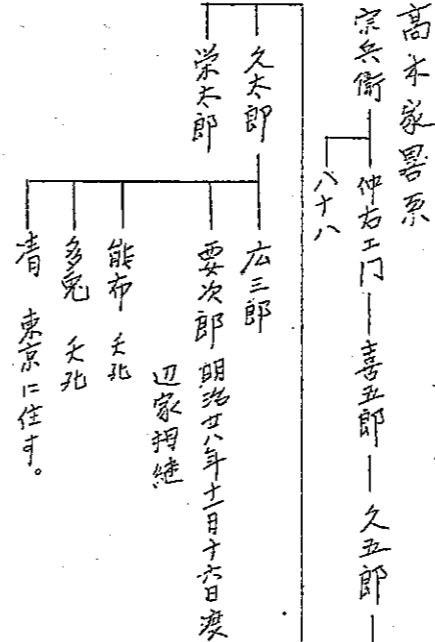 高木家畧系
宗兵衛 仲右エ門 喜五郎 久五郎
八十八
久太郎
栄太郎
広三郎
要次郎 明治廿八年十二月十六日渡
辺家相継
能布 夭死
多免 夭死
清 東京に住す。